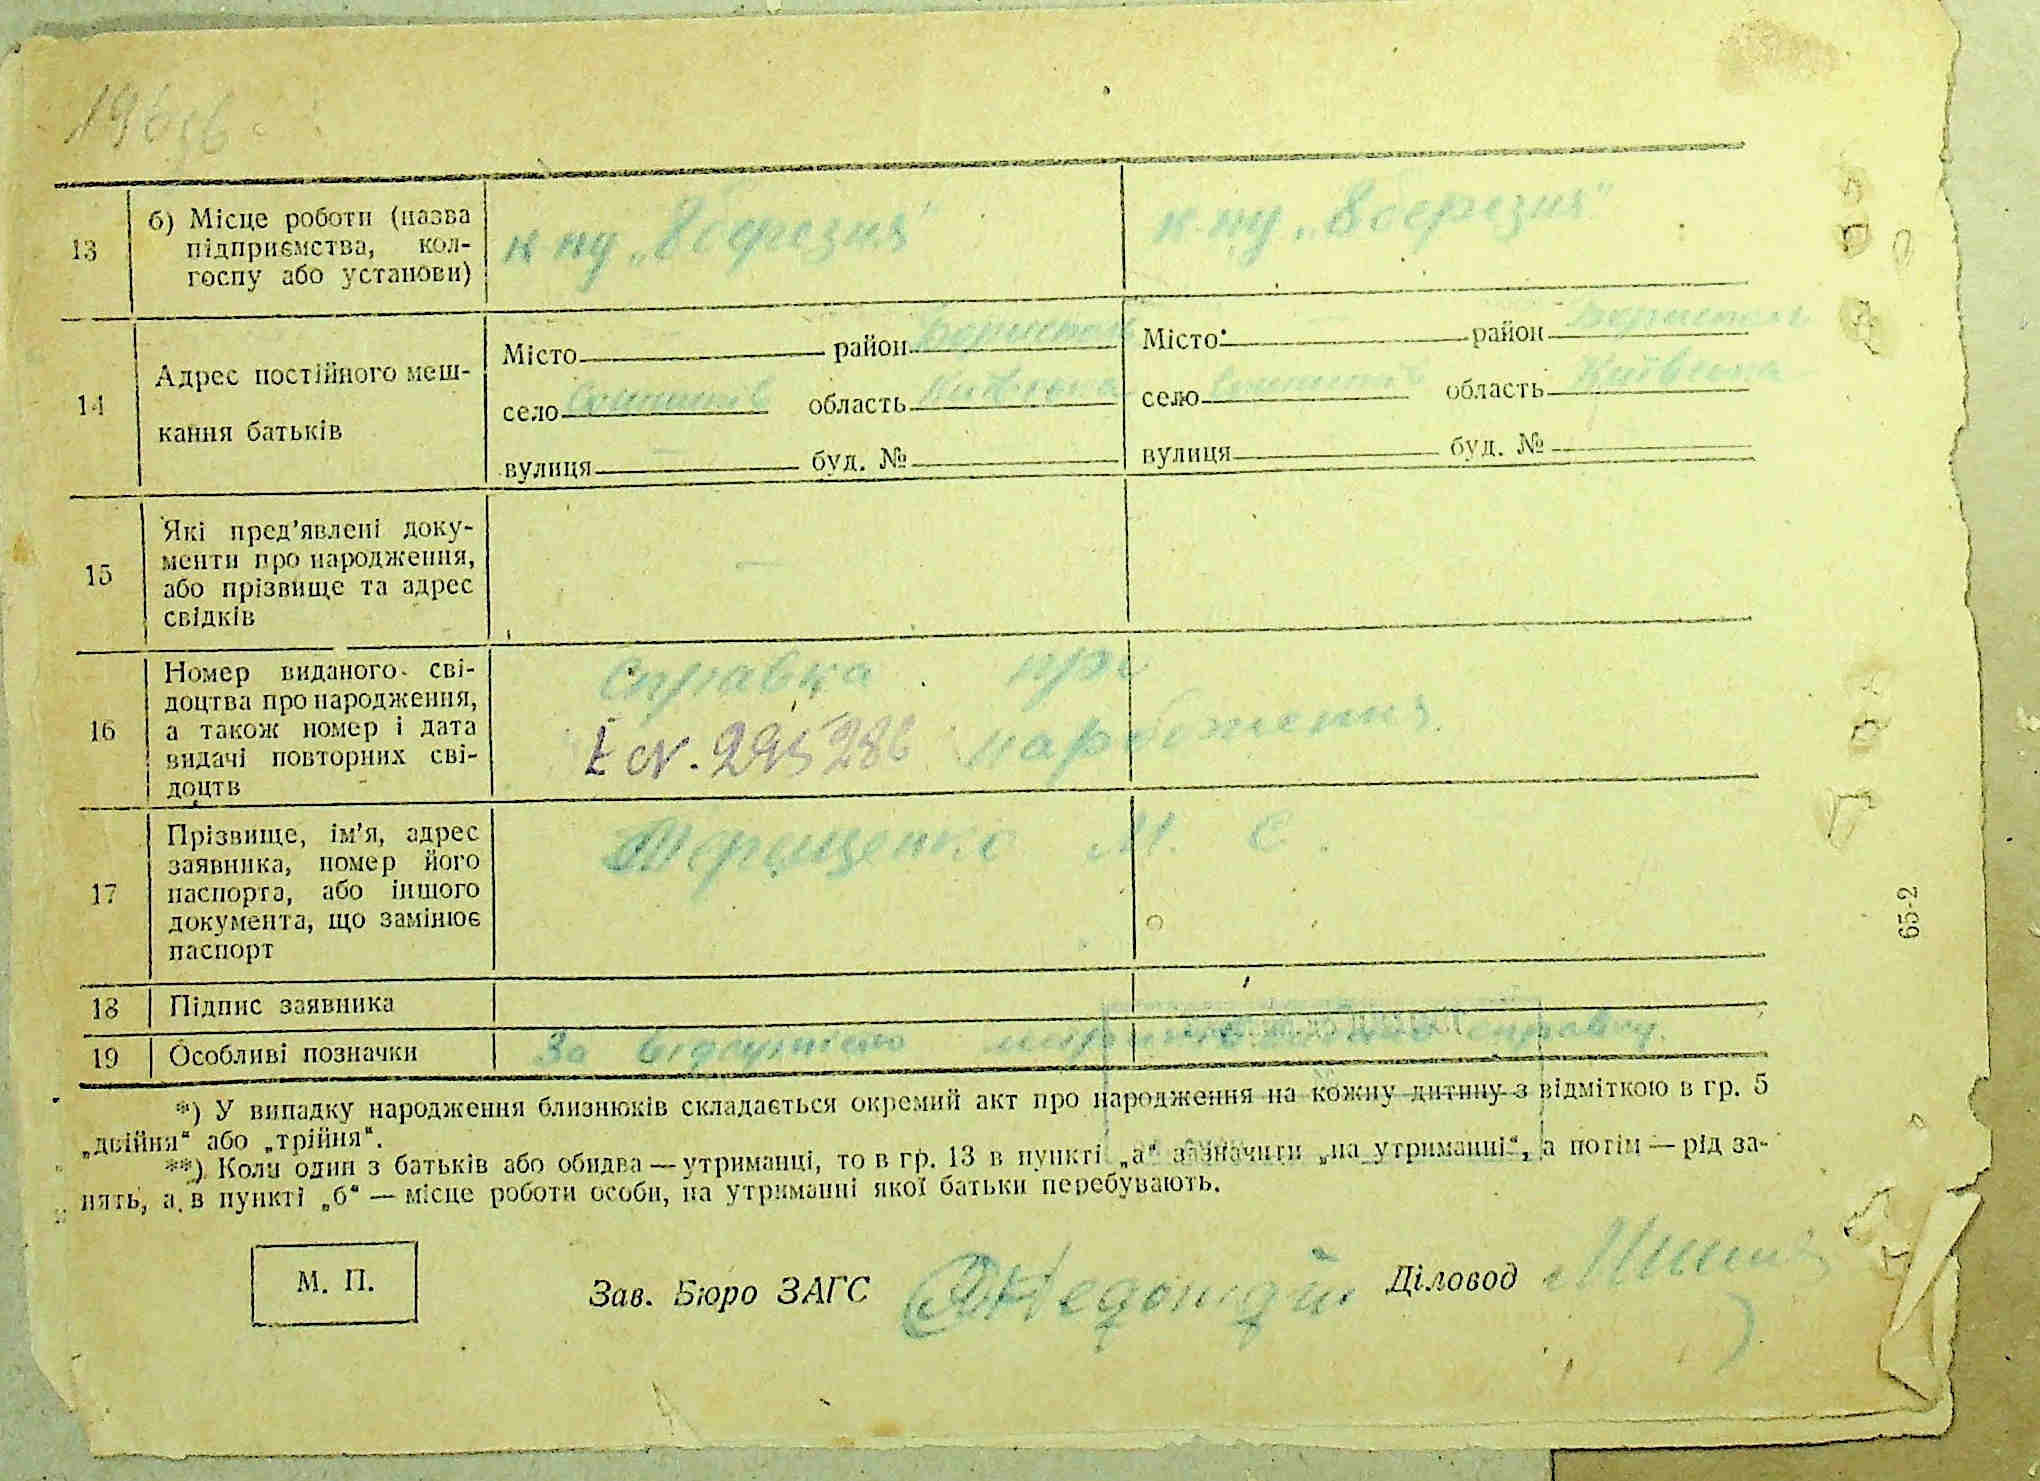 13
б) Місце роботи (назва
підприємства, кол-
госпу або установи)
к-пу „8 березня"
к-пу „8 березня"
14
Адрес постійного меш-
кання батьків
Місто район Бориспол
село область Київська
вулиця буд. №
Місто район Бориспол
село область Київська
вулиця буд. №
15
Які пред'явлені доку-
менти про народження,
або прізвище та адрес
свідків
16
Номер виданого сві-
доцтва про народження,
а також номер і дата
видачі повторних сві-
доцтв
Справка про
N. 295286 народження
17
Прізвище, ім'я, адрес
заявника, номер його
паспорта, або іншого
документа, що замінює
паспорт
Терещенко М. Є.
18 Підпис заявника
19 Особливі позначки
За відсутністю справку.
*) У випадку народження близнюків складається окремий акт про народження на кожну дитину з відміткою в гр. 5
„двійня“ або „трійня“.
**) Коли один з батьків або обидва — утриманці, то в гр. 13 в пункті „а“ зазначити „на утриманні“, а потім — рід за-
нять, а в пункті „б“ — місце роботи особи, на утриманні якої батьки перебувають.
М. П.
Зав. Бюро ЗАГС
Діловод
65-2